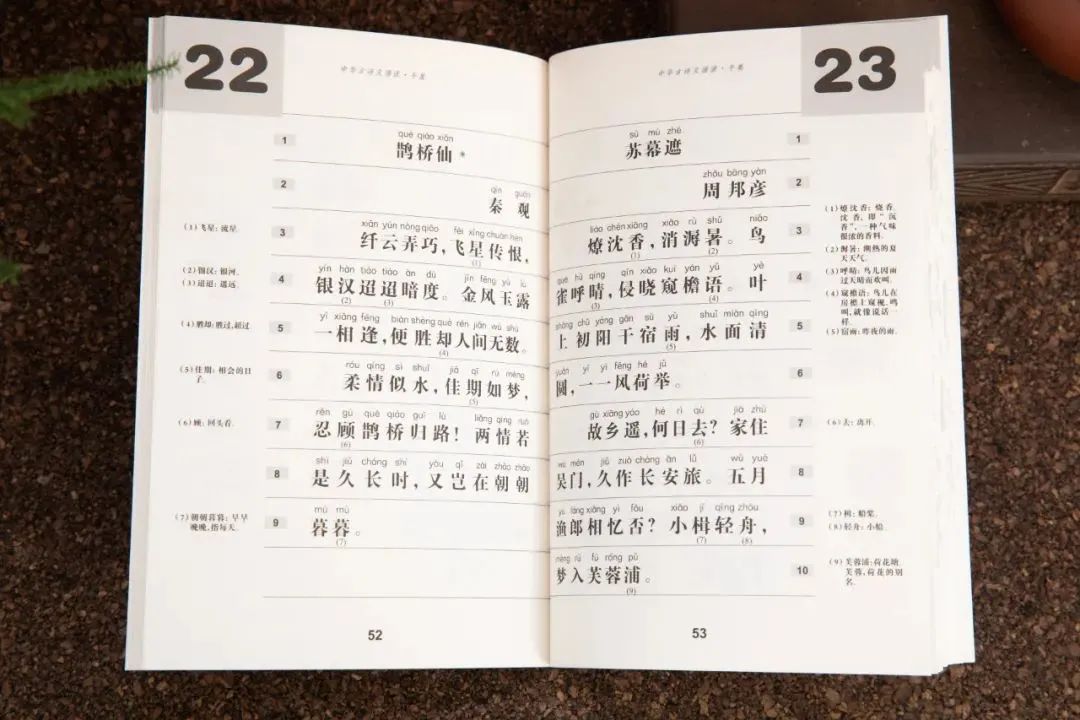 22
中华古诗文诵读
què qiáo xiān
1 鹊桥仙*
qín guān
2 秦观
xiān yún nòng qiǎo fēi xīng chuán hèn
3 纤云弄巧，飞星传恨，
(1)
yín hàn tiáo tiáo àn dù jīn fēng yù lù
4 银汉迢迢暗度。金风玉露
(2) (3)
yì xiāng féng biàn shèng què rén jiān wú shù
5 一相逢，便胜却人间无数。
(4)
róu qíng sì shuǐ jiā qī rú mèng
6 柔情似水，佳期如梦，
(5)
rěn gù què qiáo guī lù liǎng qíng ruò
7 忍顾鹊桥归路！两情若
(6)
shì jiǔ cháng shí yòu qǐ zài zhāo zhāo
8 是久长时，又岂在朝朝
mù mù
9 暮暮。
(7)
(1)飞星：流星.
(2)银汉：银河.
(3)迢迢：遥远.
(4)胜却：胜过，超过
(5)佳期：相会的日
子.
(6)顾：回头看.
(7)朝朝暮暮：早早
晚晚，指每天.
52
23
中华古诗文诵读
sū mù zhē
苏幕遮 1
zhōu bāng yàn
周邦彦 2
liáo chén xiāng xiāo rù shǔ niǎo
燎沈香，消溽暑。鸟 3
(1) (2)
què hū qíng qīn xiǎo kuī yán yǔ yè
雀呼晴，侵晓窥檐语。叶 4
(3) (4)
shàng chū yáng gān sù yǔ shuǐ miàn qīng
上初阳干宿雨，水面清 5
(5)
yuán yī yī fēng hé jǔ
圆，一一风荷举。 6
gù xiāng yáo hé rì qù jiā zhù
故乡遥，何日去？家住 7
(6)
wú mén jiǔ zuò cháng ān lǚ wǔ yuè
吴门，久作长安旅。五月 8
yú láng xiāng yì fǒu xiǎo jí qīng zhōu
渔郎相忆否？小楫轻舟， 9
(7) (8)
mèng rù fú róng pǔ
梦入芙蓉浦。 10
(9)
(1)燎沈香：烧香.
沈香，即“沉
香”，一种气味
很浓的香料.
(2)溽暑：潮热的夏
天天气.
(3)呼晴：鸟儿因雨
过天晴而欢叫.
(4)窥檐语：鸟儿在
房檐上窥视、鸣
叫，就像说话一
样.
(5)宿雨：昨夜的雨.
(6)去：离开.
(7)楫：船桨.
(8)轻舟：小船.
(9)芙蓉浦：荷花塘.
芙蓉，荷花的别
名.
53